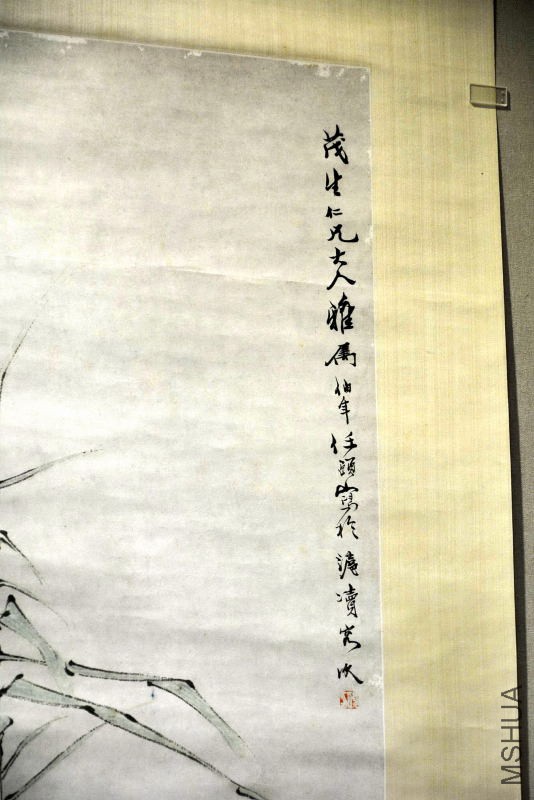 茂生仁兄大人雅属伯年任頤寫於滬瀆客次
MSHUA